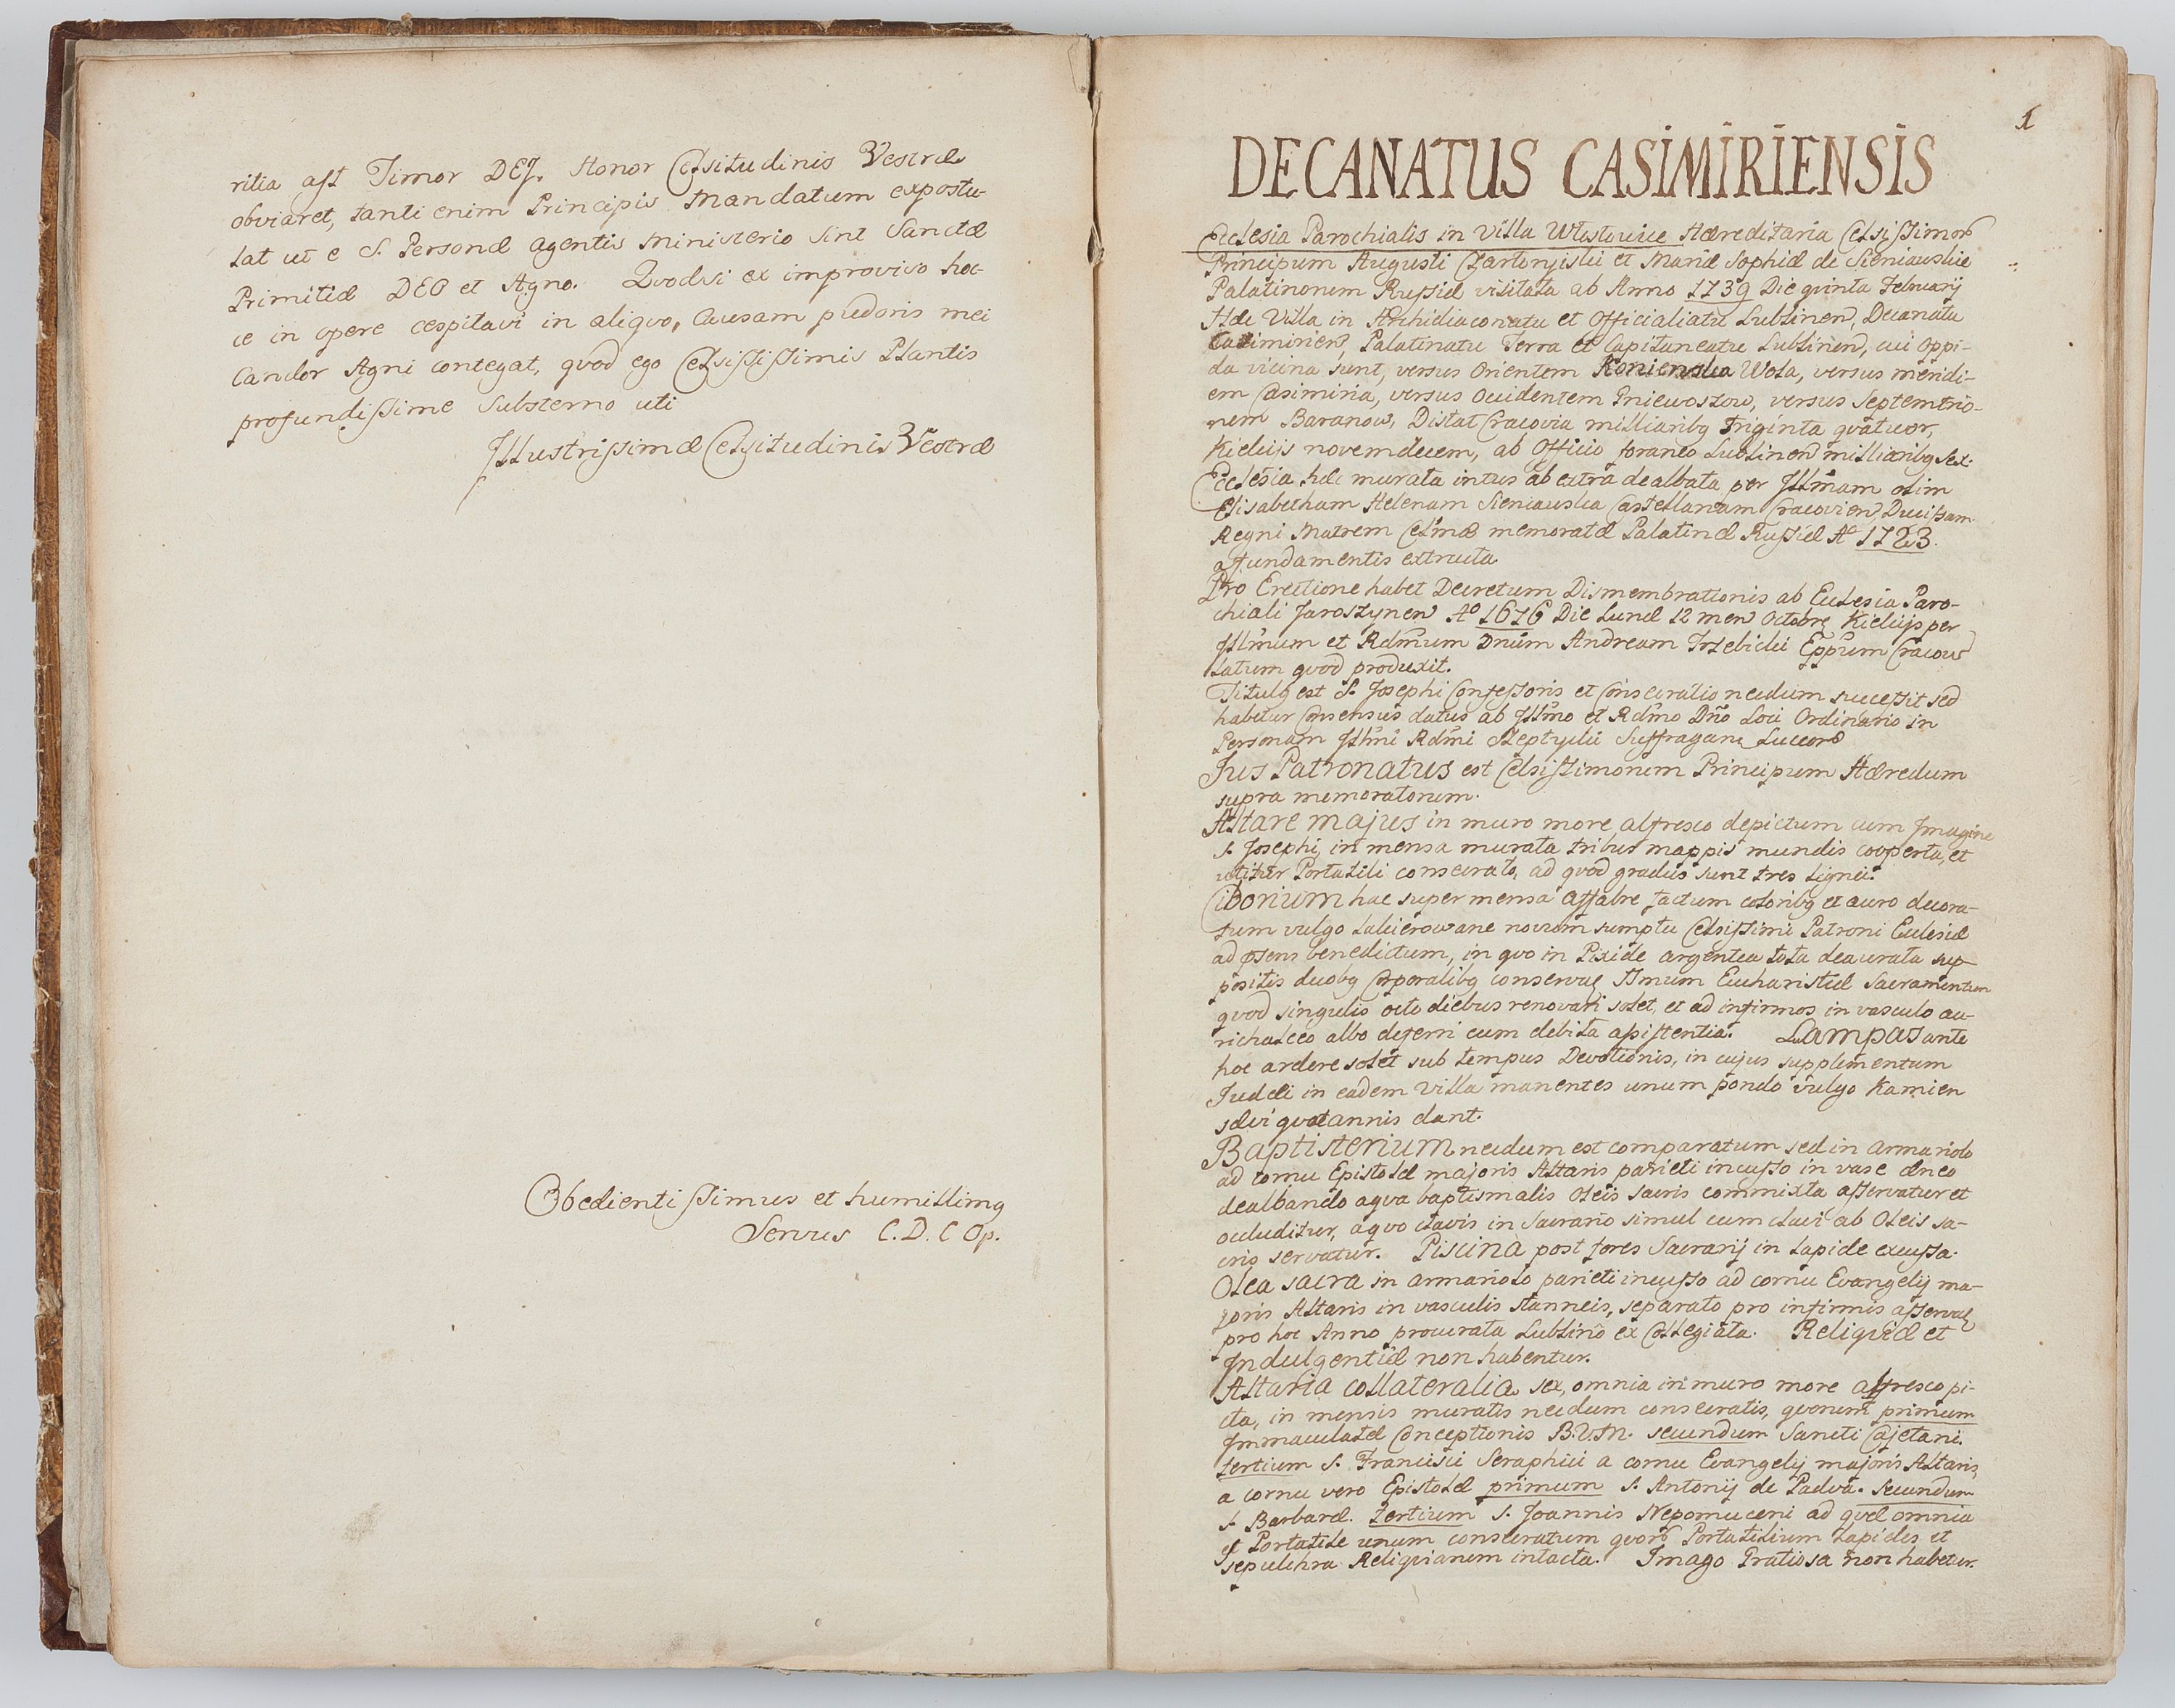 ritia ast Timor DEJ. Honor Celsitudinis Vestræ
obviaret, tanti enim Principis Mandatum expostu-
lat ut e S. Personæ agentis Ministerio sint Sanctæ
Primitiæ DEO et Agno. Quodsi ex improviso hoc
ce in opere cespitavi in aliquo, Causam pudoris mei
Candor Agni contegat, quod ego Celsissimis Plantis
profundissime Substerno uti
Illustrissimæ Celsitudinis Vestræ
Obedientissimus et humillimq
Servus C. D. C Op.
1
DECANATUS CASIMIRIENSIS
Ecclesia Parochialis in Villa Włostowice Hæreditaria Celsissimor
Principum Augusti Czartoryiski et Mariæ Sophiæ de Sieniawskie
Palatinorum Russiæ visitata ab Anno 1739 Die quinta Februarij
Hæc Villa in Archidiaconatu et Officialiatu Lublinen, Decanatu
Casimirien, Palatinatu Terra et Capitaneatu Lublinen, cui Oppi-
da vicina sunt, versus Orientem Konienska Wola, versus meridi-
em Casimiria, versus Occidentem Gniewoszow, versus Septemtrio-
nem Baranow, Distat Cracovia milliaribq Triginta quatuor,
Kielcijs novemdecem, ab Officio foraneo Lublinen milliaribq sex.
Ecclesia hæc murata intus ab extra dealbata per Illmam olim
Elisabetham Helenam Sieniawska Castellanam Cracovien Ducissam
Regni Matrem Celmæ memoratæ Palatinæ Russiæ Aº 1723.
a fundamentis extructa.
Pro Erectione habet Decretum Dismembrationis ab Ecclesia Paro-
chiali Jaroszynen Aº 1676 Die Lunæ 12 men Octobr Kielcijs per
Illmum et Rdmum Dnum Andream Trzebicki Eppum Cracov
latum quod produxit.
Titulq est S. Josephi Confessoris et Consecratio necdum successit sed
habetur Consensus datus ab Illmo et Rdmo Dño Loci Ordinario in
Personam Illmi Rdmi Szeptycki Suffragani Luceor
Jus Patronatus est Celsissimorum Principum Hæredum
supra memoratorum.
Altare majus in muro more alfresco depictum cum Imagine
S. Josephi, in mensa murata tribus mappis mundis cooperta, et
utitur Portatili consecrato, ad quod gradus sunt tres lignei.
Ciborium hac super mensa affabre factum coloribq et auro decora-
tum vulgo lakierowane novum sumptu Celsissimi Patroni Ecclesiæ
ad psens benedictum, in quo in Pixide argentea tota deaurata sup-
positis duobq Corporalibq conservat SSmum Eucharistiæ Sacramentum
quod singulis octo diebus renovari solet, et ad infirmos in vasculo au-
richalceo albo deferri cum debita assistentia. Lampas ante
hoc ardere solet sub tempus Devotionis, in cujus supplementum
Judæi in eadem Villa manentes unum pondo vulgo Kamien
sævi quotannis dant.
Baptisterium necdum est comparatum sed in armariolo
ad cornu Epistolæ majoris Altaris parieti incusso in vase æneo
dealbando aqva baptismalis Oleis sacris commixta asservatur et
occluditur, a quo clavis in Sacrario simul cum clavi ab Oleis sa-
cris servatur. Piscina post fores Sacrarij in lapide excussa.
Olea sacra in armariolo parieti incusso ad cornu Evangelij ma-
joris Altaris in vasculis stanneis, separato pro infirmis asservat
pro hoc Anno procurata Lublino ex Collegiata. Reliquiæ et
Indulgentiæ non habentur.
Altaria collateralia sex, omnia in muro more alfresco pi-
cta, in mensis muratis necdum consecratis, quorum primum
Immaculatæ Conceptionis B.V.M. secundum Sancti Cajetani.
tertium S. Francisci Seraphici a cornu Evangelij majoris Altaris,
a cornu vero Epistolæ primum S. Antonij de Padva. Secundum
S. Barbaræ. tertium S. Joannis Nepomuceni ad quæ omnia
est Portatile unum consecratum quor Portatilium lapides et
sepulchra Reliquiarum intacta. Imago Gratiosa non habetur.